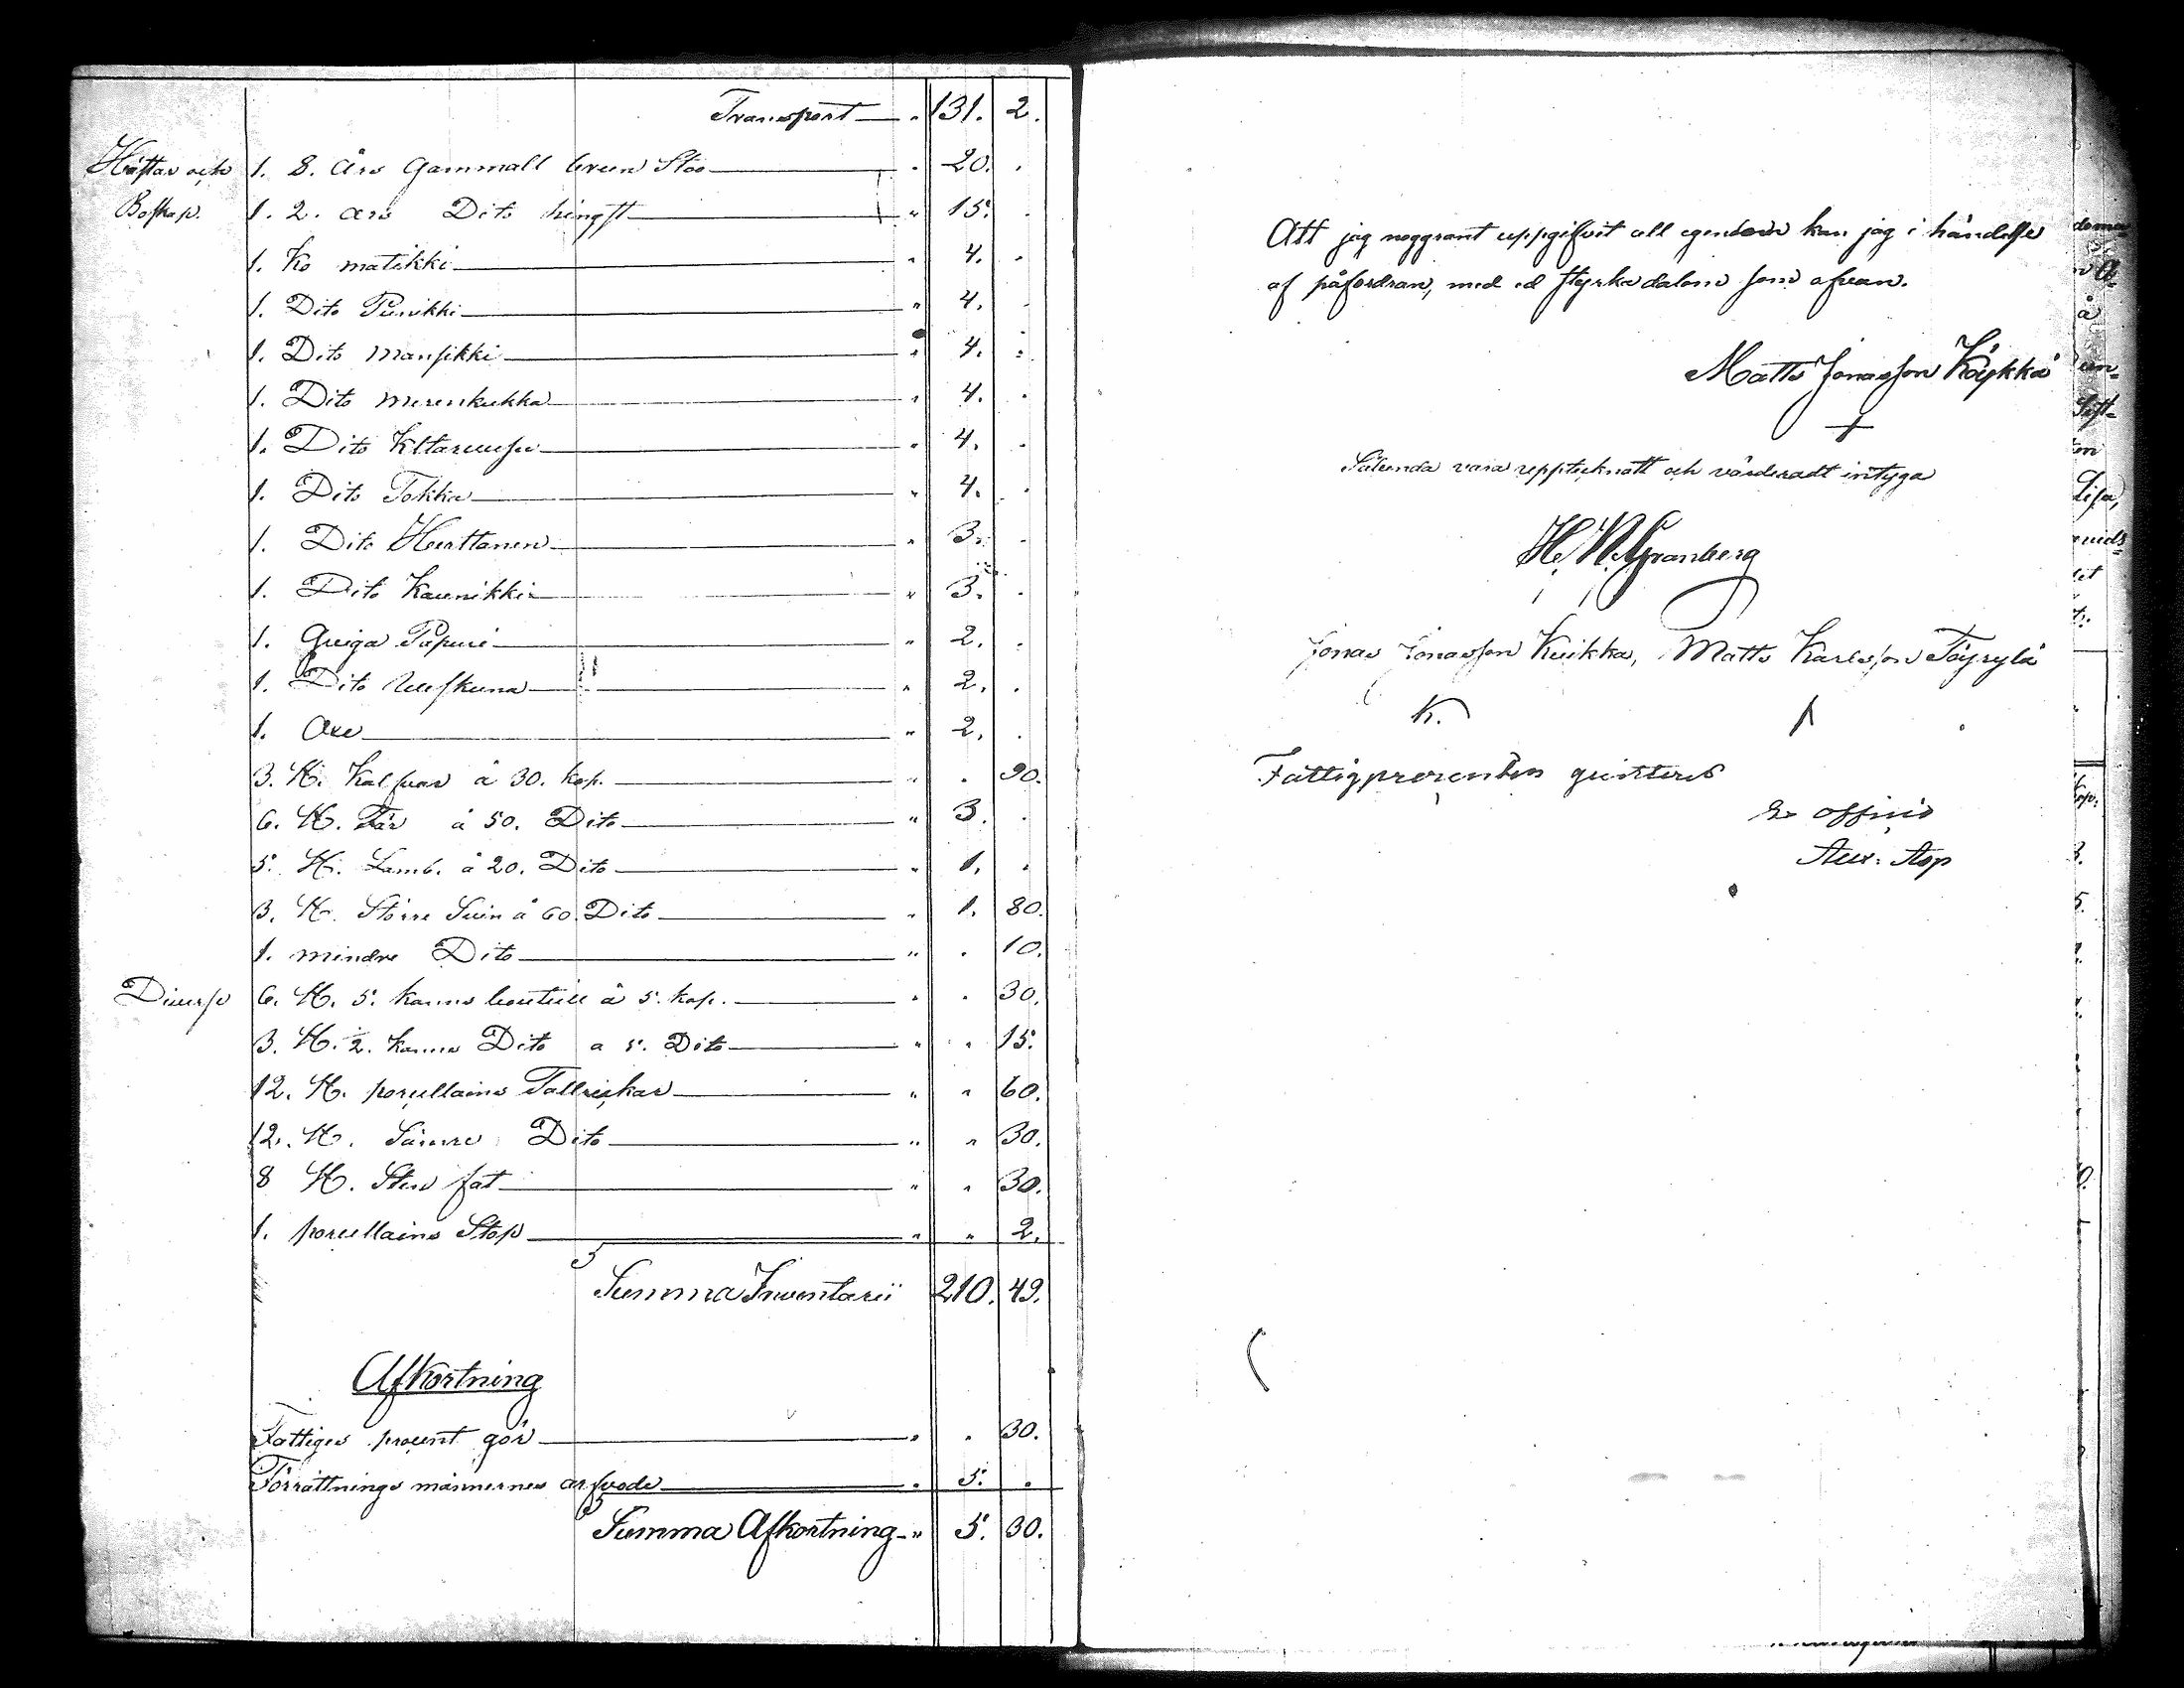 Transport — " 131. 2.
Hästar och 1. 8. års Gammall brun Stoo — " 20. .
Boskap. 1. 2. års Dito hingst — " 15. .
1. Ko matikki — " 4. .
1. Dito Punikki — " 4. .
1. Dito Mansikki — " 4. .
1. Dito merenkukka — " 4. .
1. Dito — " 4. .
1. Dito Tokka — " 4. .
1. Dito Herttanen — " 3. .
1. Dito Kaunikki — " 3. .
1. Qviga Papuri — " 2. .
1. Dito — " 2. .
1. Oxe — " 2. .
3. st. Kalfvar à 30. kop. — " . 90.
6. st. Får à 50. Dito — " 3. .
5. st. Lamb. à 20. Dito — " 1. .
3. st. Större Svin à 60. Dito — " 1. 80.
1. mindre Dito — " . 10.
Diverse 6. st. 5. kanns bouteill à 5. kop. — " . 30.
3. st. 2. kanns Dito a 5. Dito — " " 15.
12. st. porcellains Tallrickar — " " 60.
12. st. Sämre Dito — " " 30.
8 st. Sten fat — " " 30.
1. porcellains Stop — " " 2.
Summa Inventarii 210. 49.
Afkortning
Fattiges procent gör — " . 30.
Förrättnings männernes arfvode — " 5. .
Summa Afkortning — " 5. 30.
Att jag noggrant uppgifvit all egendom kan jag i händelse
af påfordran, med ed styrka datum som ofvan.
Matts Jonasson Köykkä
+
Sålunda vara upptecknatt och värderadt intyga
H. N. Granberg
Jonas Jonasson Kuikka, Matts Karlsson Töyrylä
K.
Fattigprocenten quitteras
Ex officio
Alex: Asp